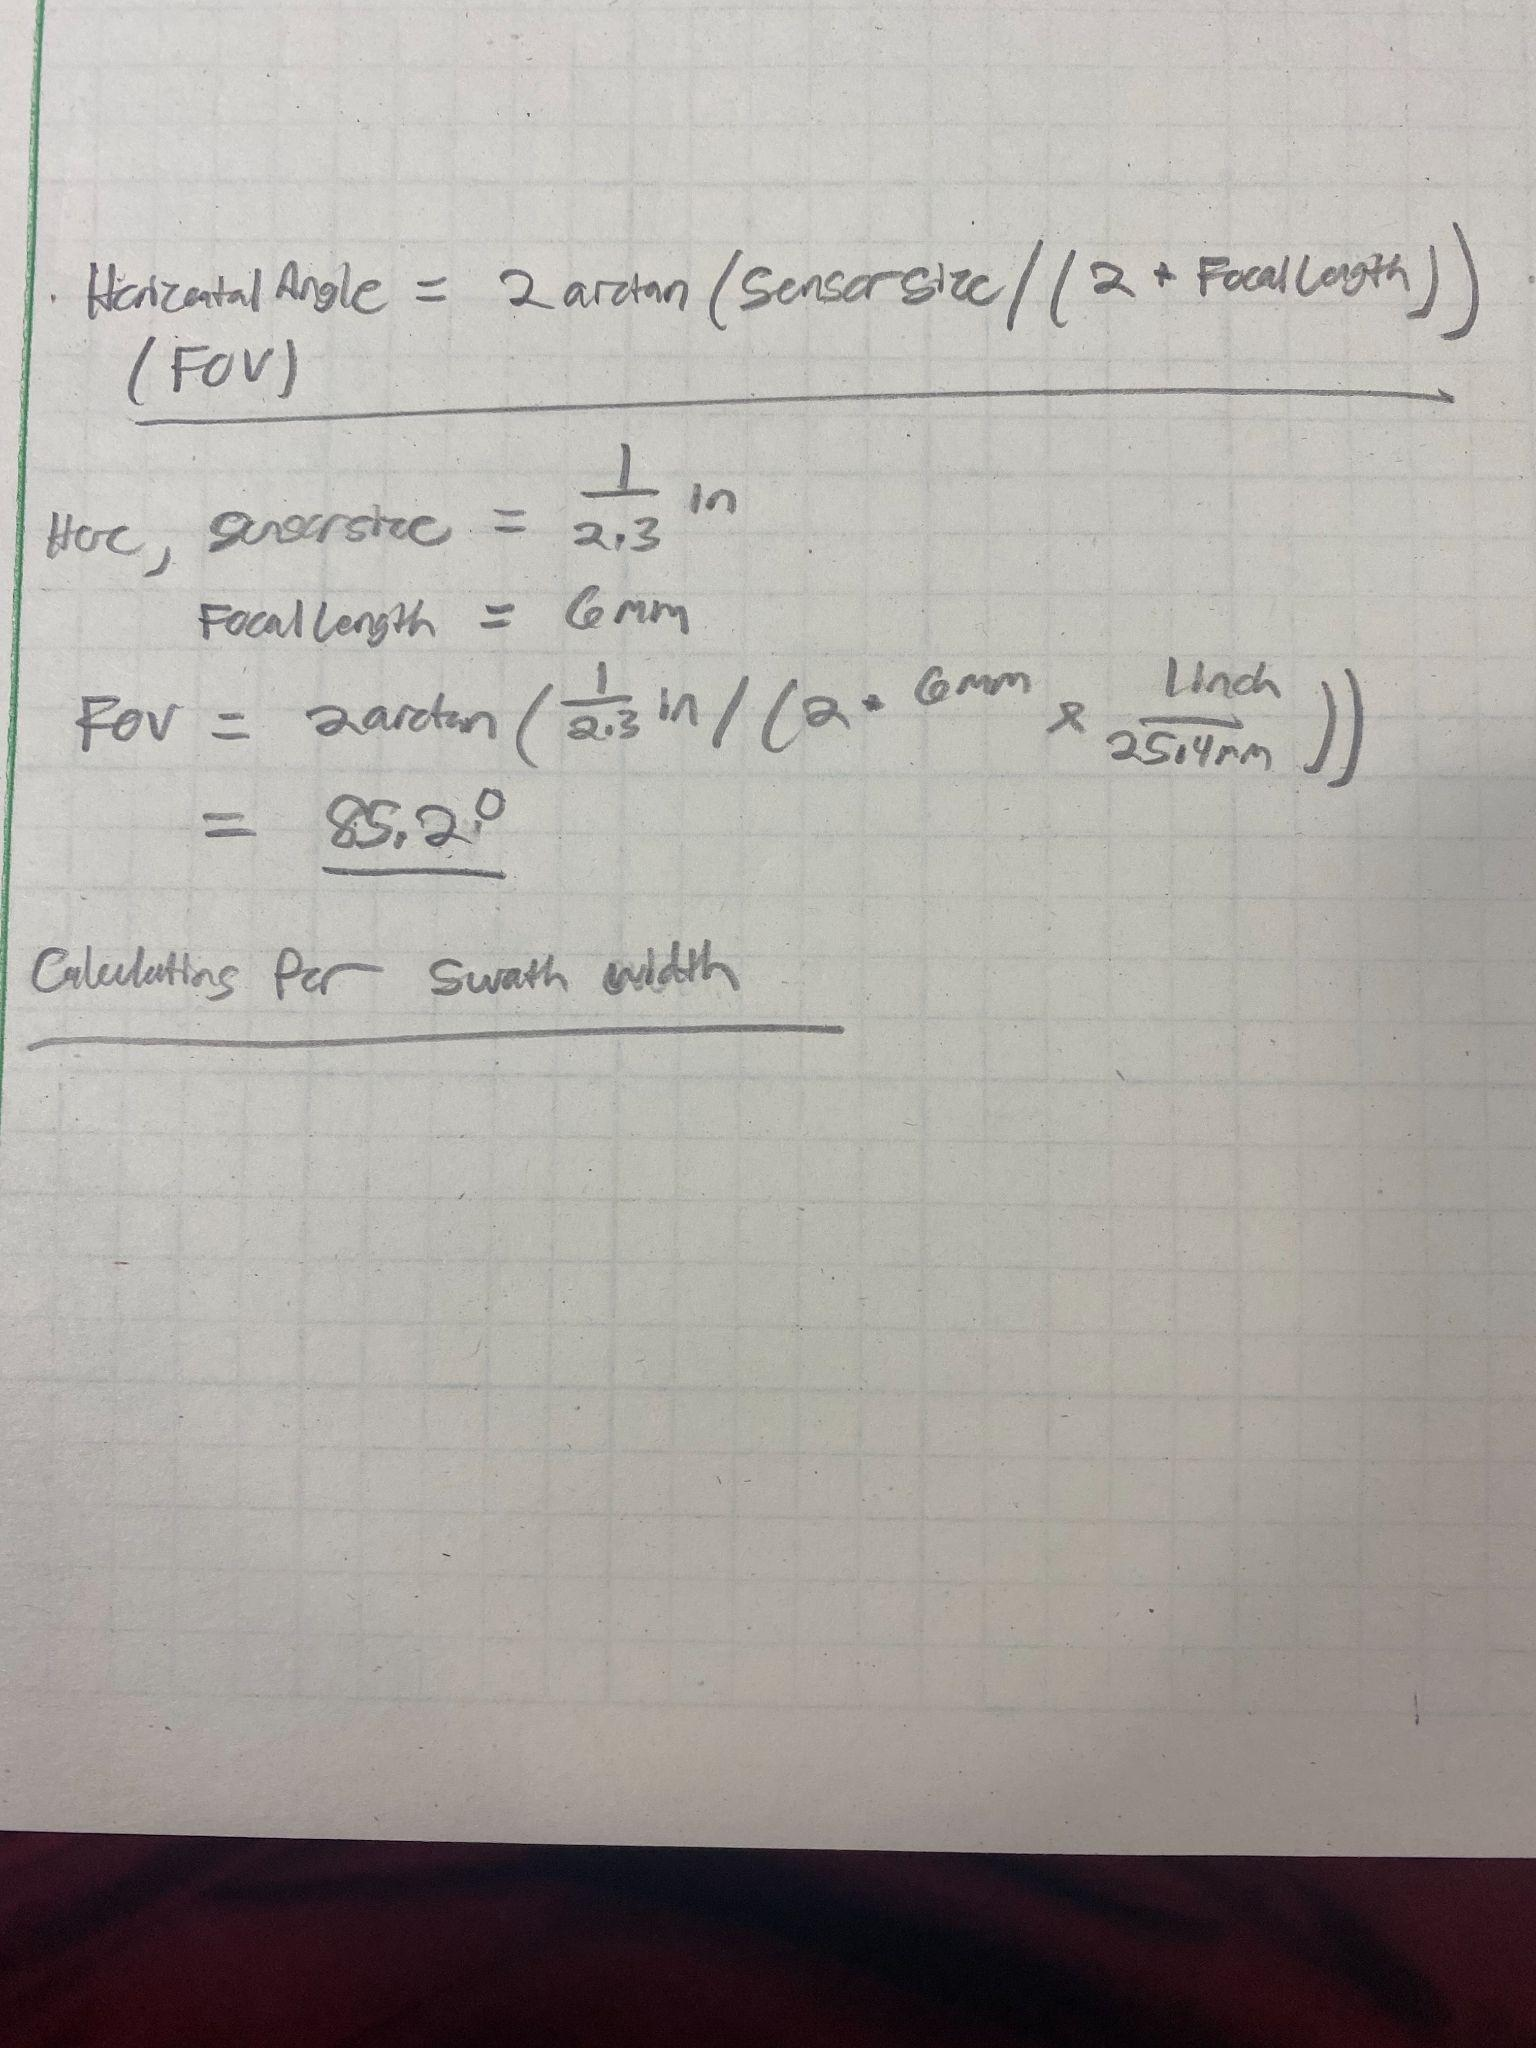 Horizontal Angle = 2 arctan (Sensor Size / (2 * Focal Length))
(FOV)
Here, sensor size = 1/2.3 in
Focal Length = 6mm
FOV = 2 arctan (1/2.3 in / (2 * 6mm x 1 inch/25.4mm))
= 85.2°
Calculating For Swath width